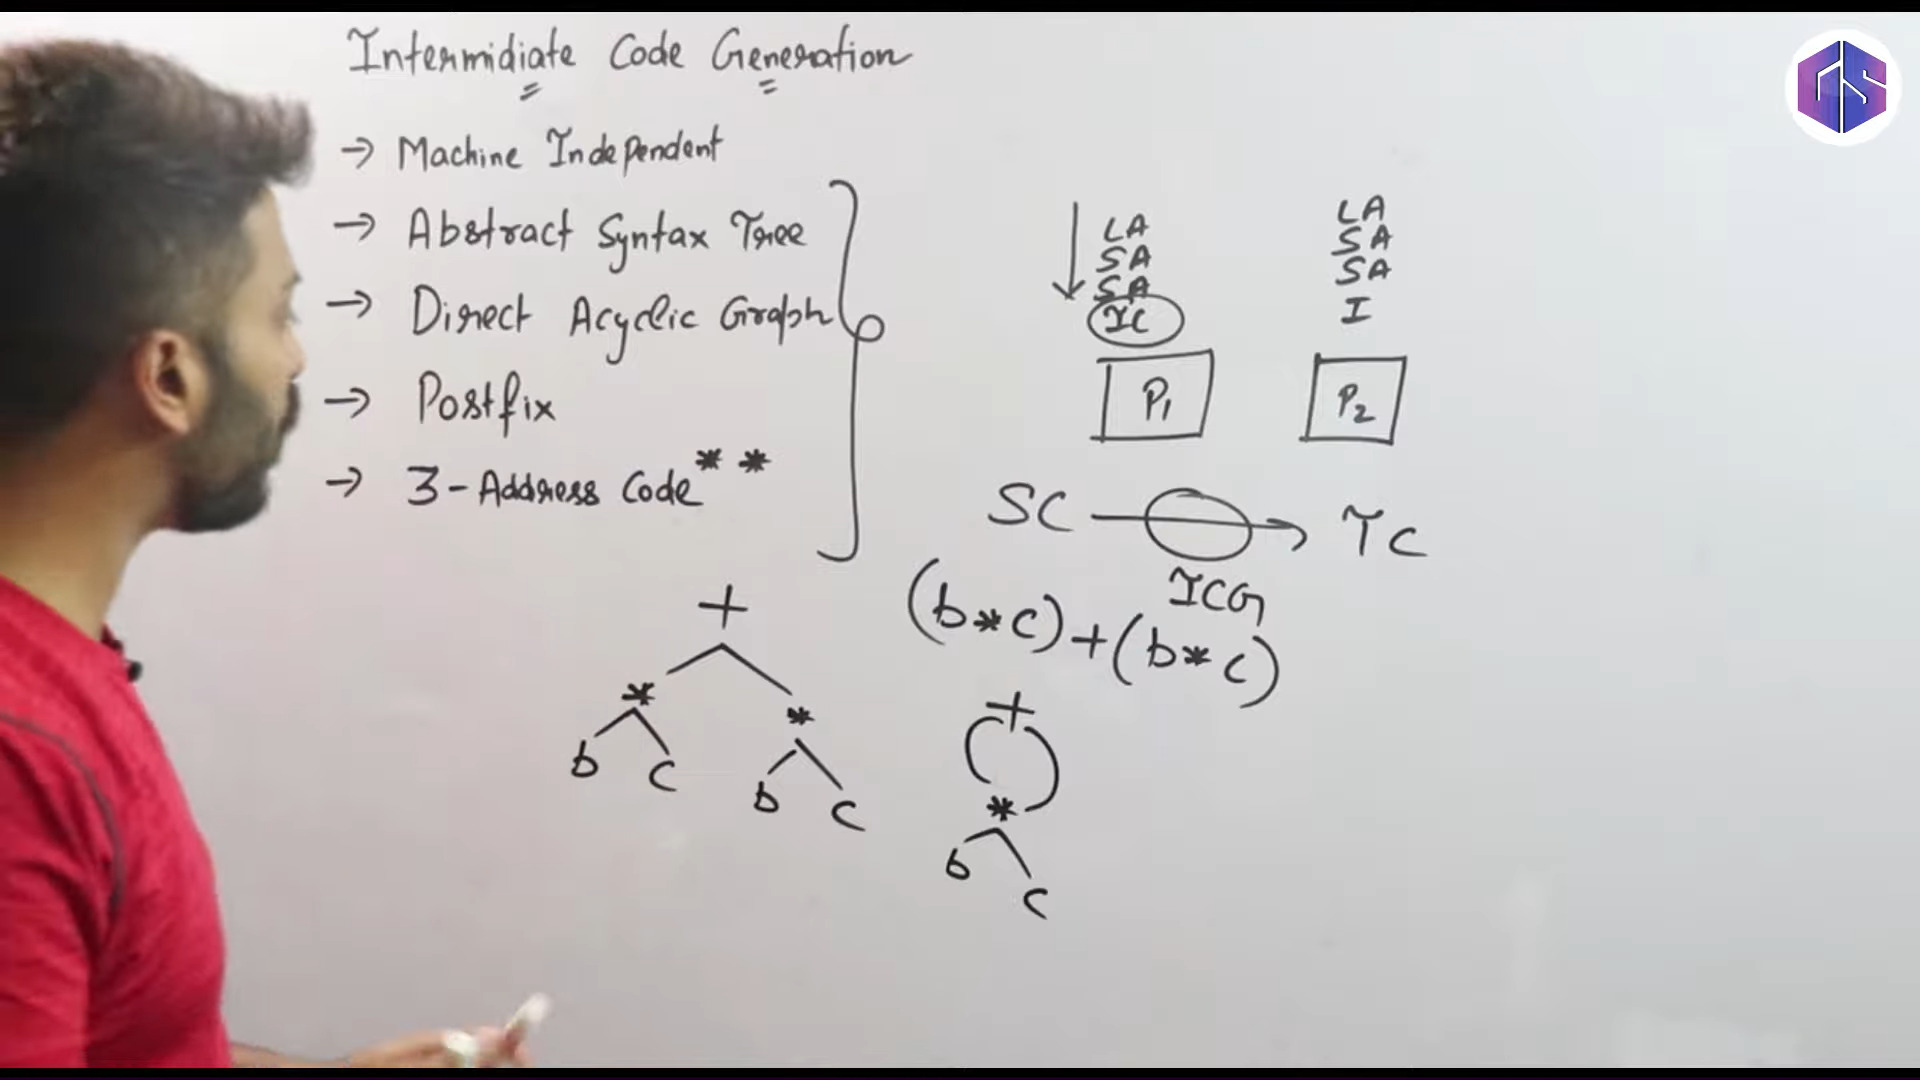 Intermidiate Code Generation
→ Machine Independent
→ Abstract Syntax Tree
→ Direct Acyclic Graph
→ Postfix
→ 3-Address Code**
LA
SA
SA
IC
P1
LA
SA
SA
I
P2
SC → TC
ICG
(b*c)+(b*c)
+
* *
b c b c
+
*
b c
GS